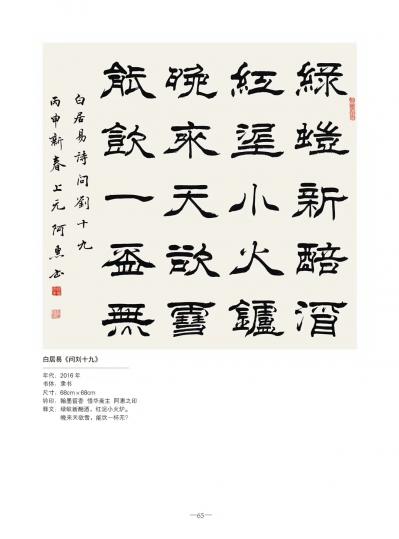 綠螘新醅酒
紅埿小火鑪
晚來天欲雪
能飲一盃無
白居易詩问劉十九
丙申新春上元阿惠书
白居易《问刘十九》
年代：2016年
书体：隶书
尺寸：68cm×68cm
钤印：翰墨留香 惜华斋主 阿惠之印
释文：绿蚁新醅酒，红泥小火炉。
晚来天欲雪，能饮一杯无？
—65—